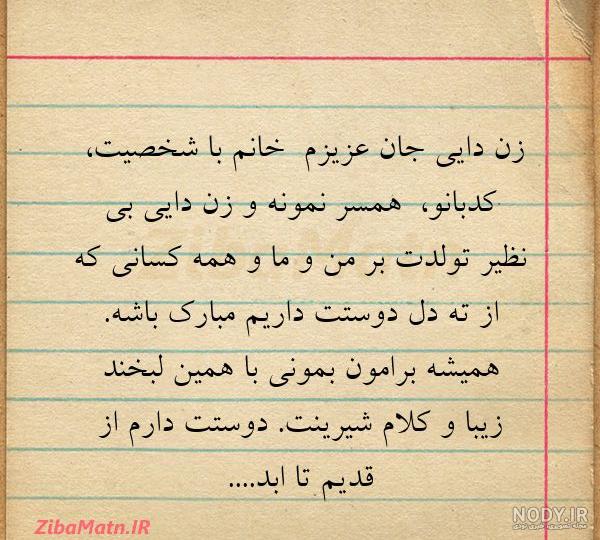 زن دایی جان عزیزم خانم با شخصیت،
کدبانو، همسر نمونه و زن دایی بی
نظیر تولدت بر من و ما و همه کسانی که
از ته دل دوستت داریم مبارک باشه.
همیشه برامون بمونی با همین لبخند
زیبا و کلام شیرینت. دوستت دارم از
قدیم تا ابد....
ZibaMatn.IR
NODY.IR
مجله تصویری، خبری نودی